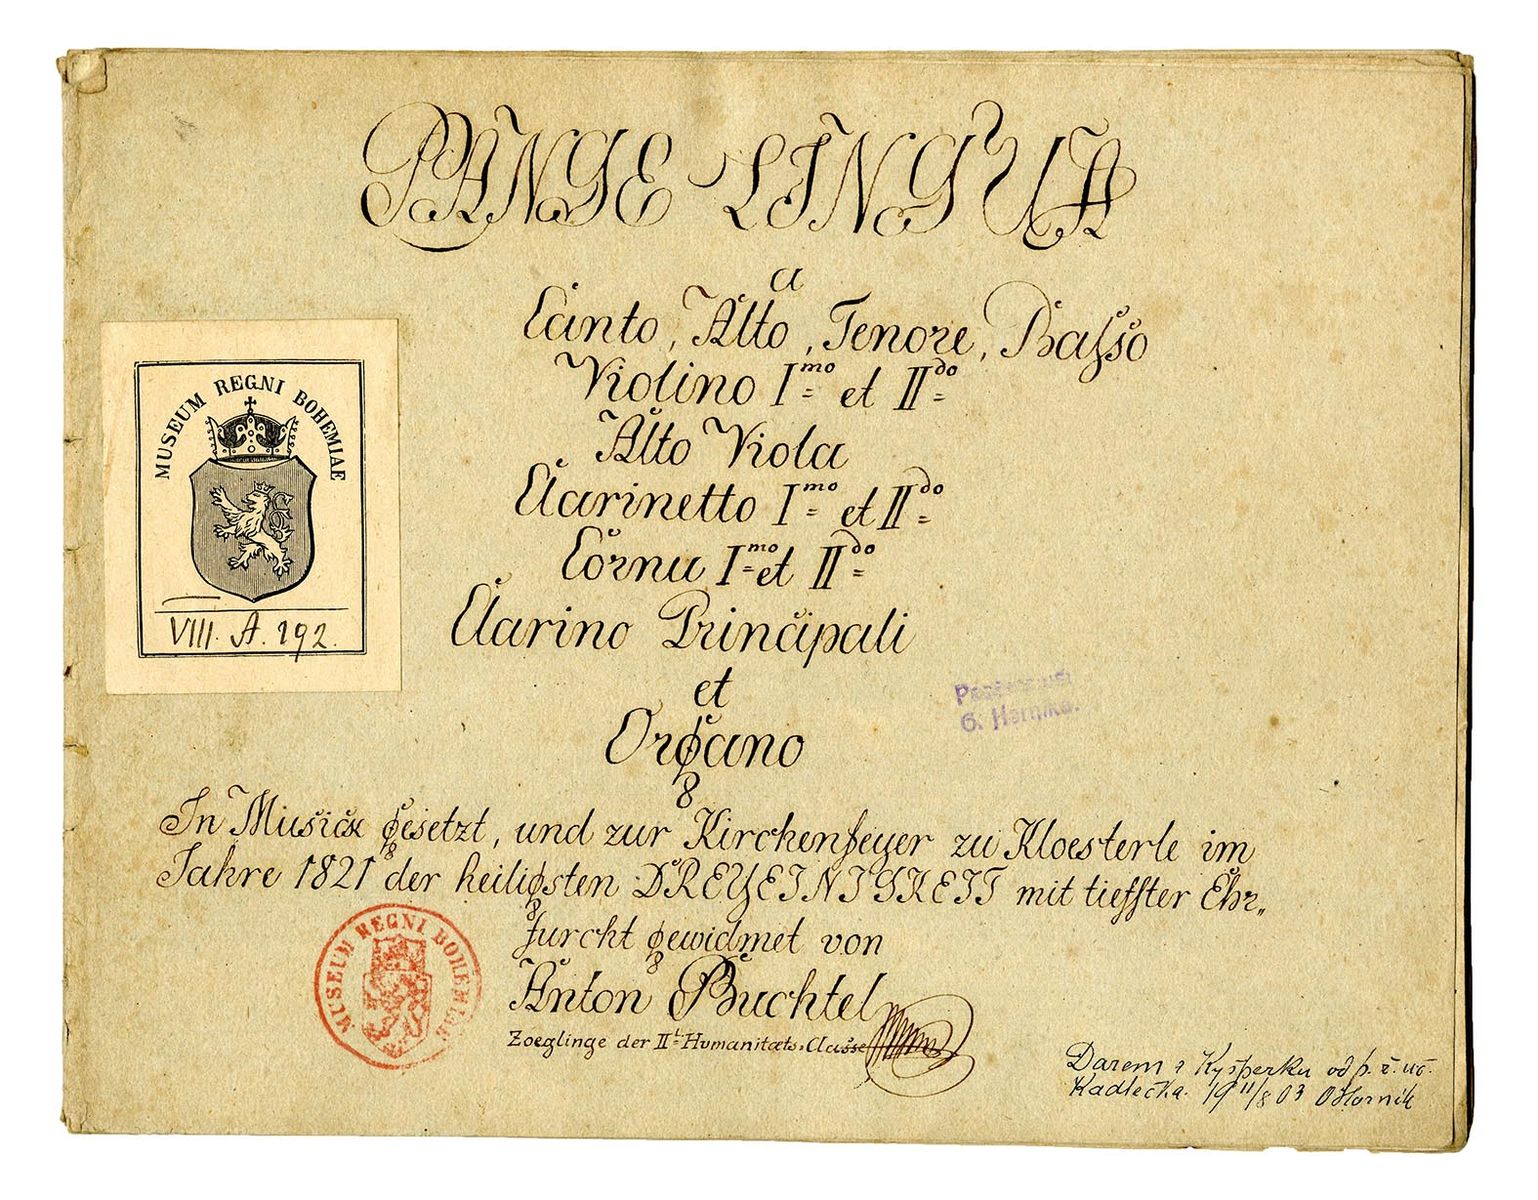 PANGE LINGUA
a
Canto, Alto, Tenore, Basso
Violino I=mo et II=do
Alto Viola
Clarinetto I=mo et II=do
Cornu I=mo et II=do
Clarino Principali
et
Organo
MUSEUM REGNI BOHEMIAE
VIII. A. 192.
In Musick gesetzt, und zur Kirchenfeyer zu Kloesterle im
Jahre 1821 der heiligsten DREYEINIGKEIT mit tieffster Ehr„
furcht gewidmet von
Anton Buchtel
Zoeglinge der II=t Humanitæts-Classe
MUSEUM REGNI BOHEMIAE
Darem z Kyšperku od p. ř. uč.
Kadlečka. 19 11/8 03 OHornik